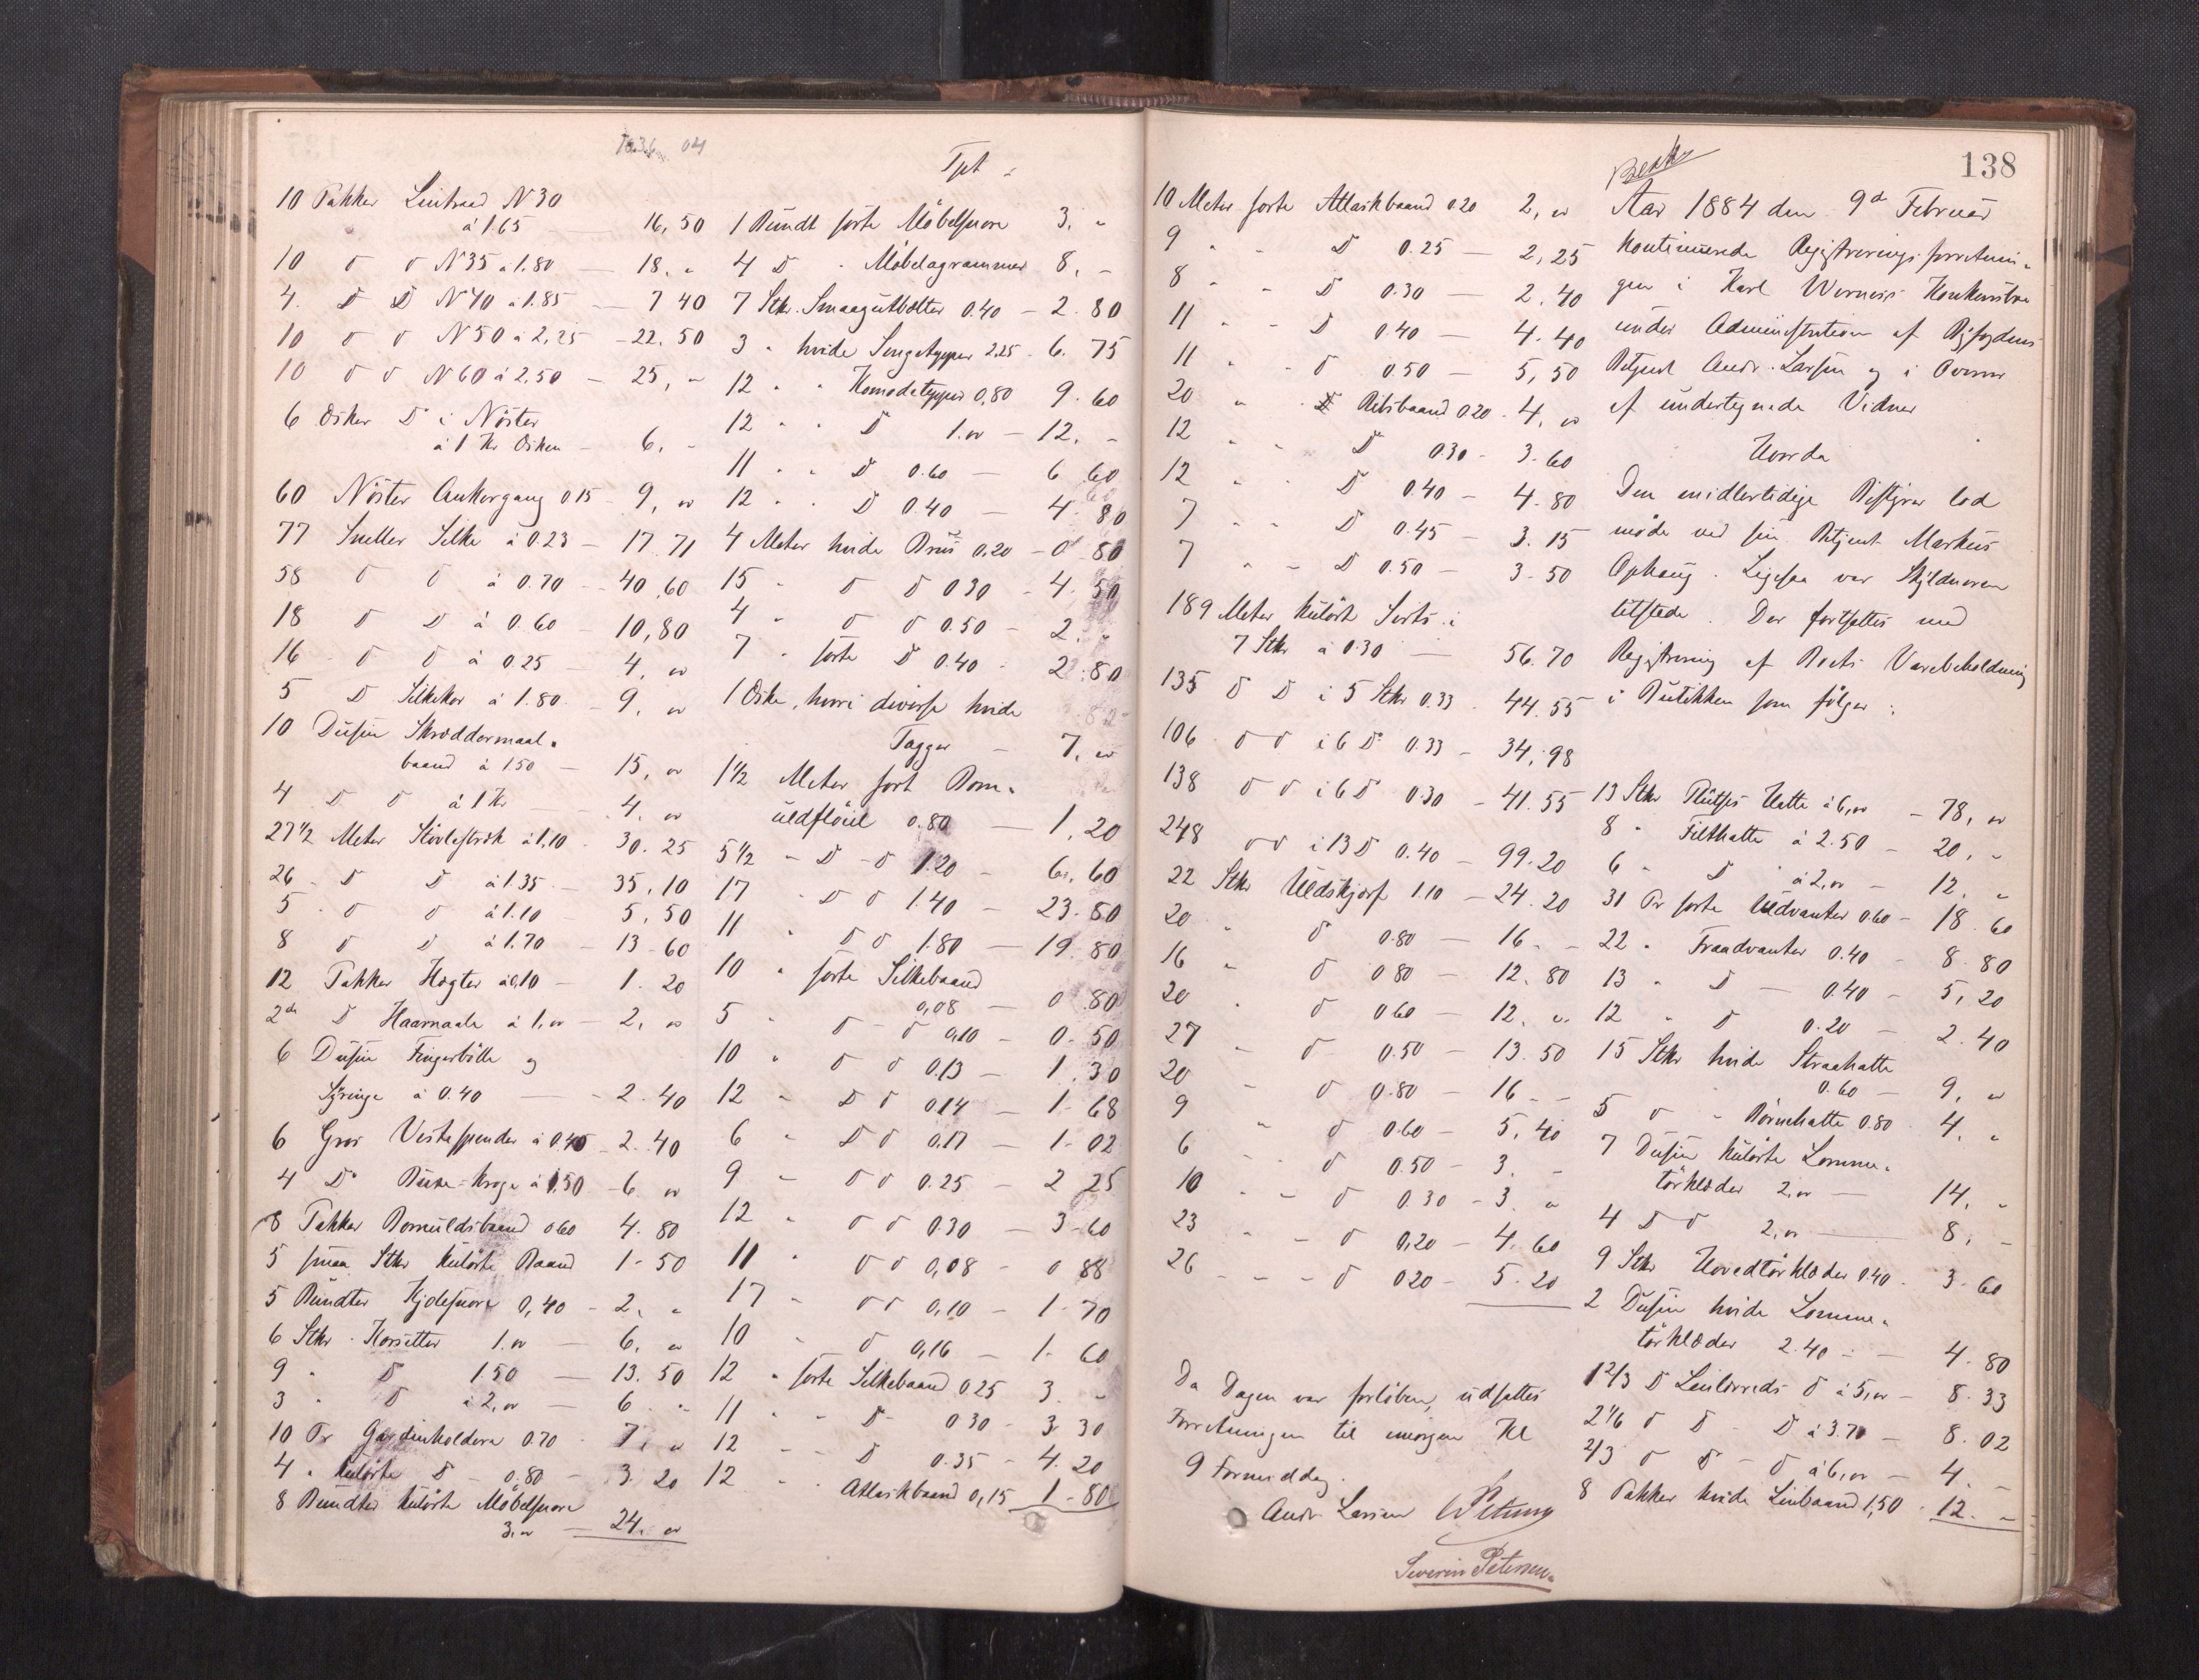 10 Pakker Lintraad N 30
à 1.65 — 16,50
10 D D N 35 à 1.80 — 18, "
4. D D N 40 à 1.85 — 7 40
10 D D N 50 à 2,25 - 22.50
10 D D N 60 à 2.50 — 25, "
6 Æsker D i Nöster
à 1 Kr Æsken — 6, "
60 Nöster Ankergang 0.15 - 9, "
77 Sneller Silke à 0.23 — 17.71
58 D D à 0.70 - 40,60
18 D D à 0.60 - 10,80
16 D D à 0.25 - 4, "
5 D Silkekor à 1.80 - 9, "
10 Dusin Skræddermaal-
baand à 1.50 — 15, "
4 D D à 1 Kr — 4, "
27 1/2 Meter Stövlestræk à 1,10 - 30.25
26 D D à 1.35 — 35,10
5 D D à 1.10 — 5,50
8 D D à 1.70 — 13-60
12 Pakker Hægter à 0,10 — 1.20
2 D Haarnaale à 1, — 2, "
6 Dusin Fingerbölle og
Syringe à 0.40 — 2.40
6 Gros Vestespender à 0.40 - 2.40
4 D Buxe-Kroge à 1,50 - 6 "
8 Pakker Bomuldsbaand 0.60 4.80
5 smaa Stkr kulörte Baand 1-50
5 Bundter Kjolesnore 0,40 - 2, "
6 Stkr. Korsetter 1. — 6, "
9 " D 1.50 — 13.50
3 " D à 2, — 6. "
10 Pr Gardinholdere 0.70 - 7, "
4 " kulörte D - 0.80 - 3.20
8 Bundter kulörte Möbelsnore
3. — 24. "
Tpt
1 Bundt sorte Möbelsnore 3, "
4 D " Möbelagrammer 8, "
7 Stkr. Smaagutbælter 0.40 - 2.80
3 " hvide Sengetepper 2,25 - 6.75
12 " " Komodetepper 0,80 9.60
12 " " D 1. — 12, "
11 " " D 0.60 — 6 60
12 " " D 0.40 — 4.80
4 Meter hvide Brus 0.20 - 0.80
15 " D D 0.30 - 4.50
4 " D D 0.50 - 2. "
7 " sorte D 0.40 - 2.80
1 Æske, hvori diverse hvide
Tagger — 7, "
1 1/2 Meter sort Bom-
uldflöiel 0.80 — 1,20
5 1/2 - D - D 1.20 — 6,60
17 " D D 1.40 — 23.80
11 " D D 1.80 — 19.80
10 " sorte Silkebaand
0,08 — 0 80
5 " D - D 0,10 — 0.50
10 " D D 0.13 — 1.30
12 " D D 0.14 — 1-68
6 " D D 0.17 — 1-02
9 " D D 0.25 — 2 25
12 " D D 0.30 — 3-60
11 " D D 0,08 - 0 88
17 " D D 0,10 — 1-70
10 " D 0,16 — 1-60
12 " sorte Silkebaand 0.25 3. "
11 " " D 0.30 - 3.30
12 " " D 0.35 - 4.20
12 " Atlaskbaand 0,15 1-80
138
10 Meter sorte Atlaskbaand 0.20 2, "
9 " - D 0.25 — 2,25
8 " " D 0.30 — 2.40
11 " - D 0.40 — 4.40
11 " " D 0.50 — 5,50
20 " " Ribsbaand 0.20 - 4, "
12 " " D 0.30 - 3.60
12 " " D 0.40 - 4.80
7 " " D 0.45 - 3.15
7 " " D 0.50 — 3-50
189 Meter kulört Sirts i
7 Stkr à 0.30 — 56.70
135 D D i 5 Stkr 0.33 - 44.55
106 D D i 6 D 0.33 - 34,98
138 D D i 6 D 0.30 - 41.55
248 D D i 13 D 0.40 - 99.20
22 Stkr Uldskjærf 1.10 - 24.20
20 " D 0.80 — 16. -
16 " D 0.80 — 12.80
20 " D 0.60 — 12. "
27 " D 0.50 — 13.50
20 " D 0.80 — 16 - -
9 " D 0.60 — 5,40
6 " D 0.50 — 3. -
10 " D 0.30 - 3. "
23 " D 0,20 - 4.60
26 " D 0.20 - 5.20
Da Dagen var forlöben, udsattes
Forretningen til imorgen Kl
9 Formiddag.
Andr. Larsen
Severin Petersen
Aar 1884 den 9d Februar
kontinuerede Registreringsforretnin-
gen i Karl Werners Konkursbo
under Administration af Byfogdens
Betjent Andr. Larsen og i Overvær
af undertegnede Vidner
Hvorda
Den midlertidige Bestyrer lod
möde ved sin Betjent Markus
Ophaug. Ligesaa var Skyldneren
tilstede. Der fortsattes med
Registrering af Boets Varebeholdning
i Butikken som fölger:
13 Stkr Pluthes Hatte à 6, - 78, "
8 " Filthatte à 2.50 - 20, "
6 " D à 2, — 12, "
31 Pr sorte Uldvanter 0.60 - 18.60
22 " Traadvanter 0.40 - 8.80
13 " D — 0.40 - 5,20
12 " D 0.20 — 2.40
15 Stkr hvide Straahatte
0.60 — 9, "
5 D " Börnehatte 0.80 - 4, "
7 Dusin kulörte Lomme-
törklæder 2, — 14, "
4 D D 2, — 8, "
9 Stkr Hovedtörklæder 0.40 - 3-60
2 Dusin hvide Lomme-
törklæder 2.40 — 4.80
1 2/3 D Linlerreds D à 5, — 8.33
2 1/6 D D - D à 3.70 — 8.02
2/3 D D - D à 6, — 4. "
8 Pakker hvide Linbaand 1,50 - 12. "